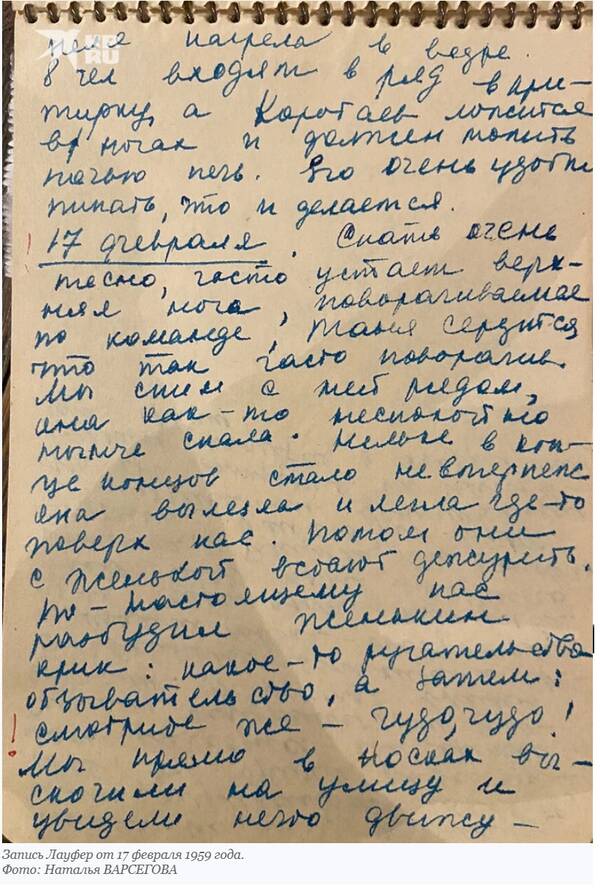 KP.RU
неля нагрела в ведре.
8 чел входят в ряд в при-
тирку, а Коротаев ложится
в ногах и должен топить
ночью печь. Его очень удобно
пинать, что и делается.
! 17 февраля. Спать очень
тесно, часто устает верх-
няя нога, поворачиваемся
по команде, Таня сердится,
что так часто поворачив.
Мы спим с ней рядом,
она как-то неспокойно
нынче спала. Нельке в кон-
це концов стало невтерпеж
она вылезла и легла где-то
поверх нас. Потом они
с Женькой встают дежурить.
По-настоящему нас
разбудил Женькин
крик: какое-то ругательство
обзывательство, а затем:
! смотрите же – чудо, чудо!
Мы прямо в носках вы-
скочили на улицу и
увидели нечто движу-
Запись Лауфер от 17 февраля 1959 года.
Фото: Наталья ВАРСЕГОВА